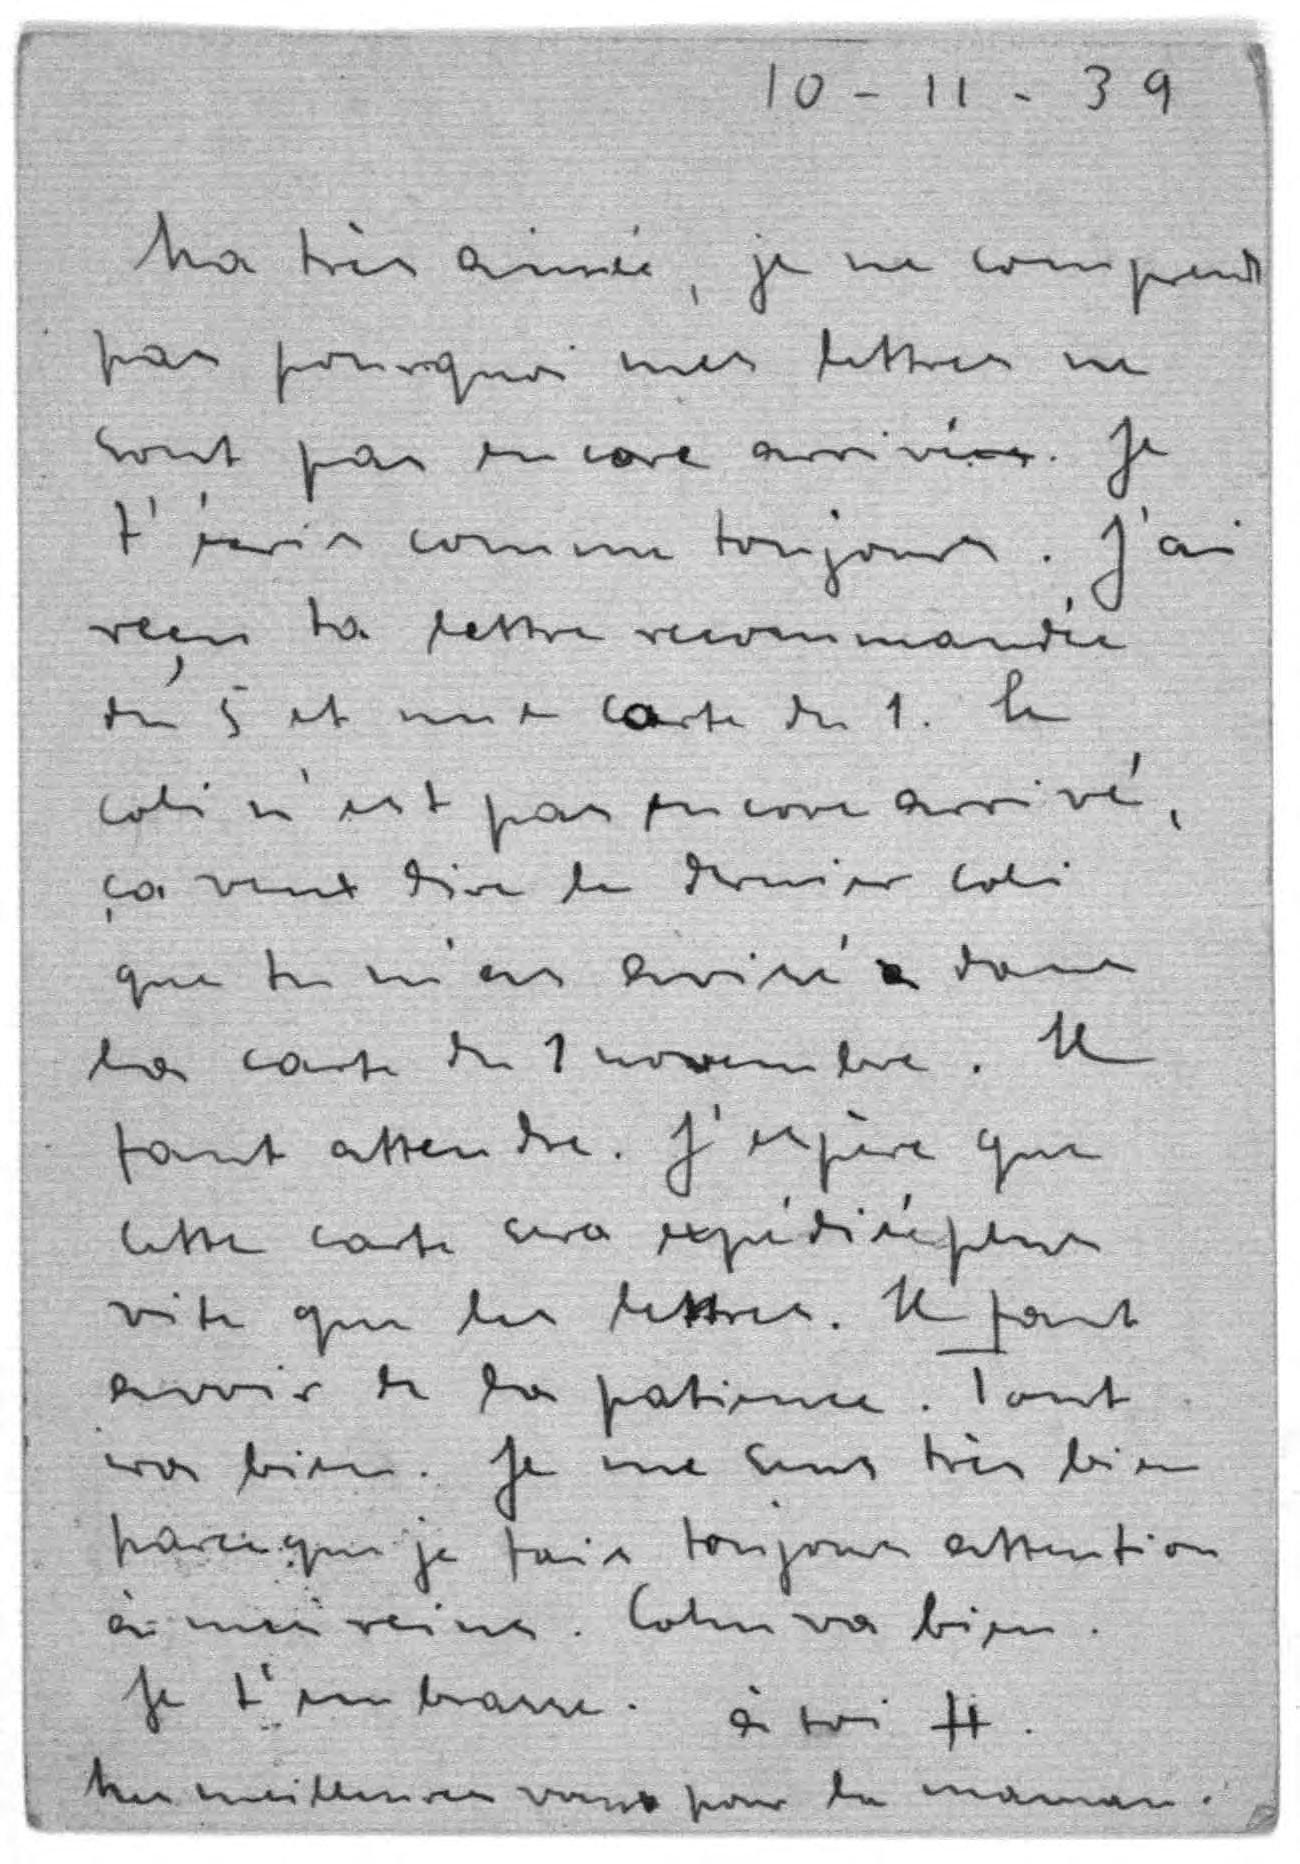 10 - 11 - 39
Ma très aimée, je ne comprends
pas pourquoi mes lettres ne
sont pas encore arrivées. Je
t'écris comme toujours. J'ai
reçu ta lettre recommandée
du 5 et une carte du 1. Le
coli n'est pas encore arrivé,
ça veux dire le dernier coli
que tu m'as avisé dans
la carte du 1 novembre. Il
faut attendre. J'espère que
cette carte sera expédiée plus
vite que les lettres. Il faut
avoir de la patience. Tout
ira bien. Je me sens très bien
parceque je fais toujours attention
à mes reins. Cohn va bien.
Je t'embrasse. à toi H.
Mes meilleures vœux pour la maman.